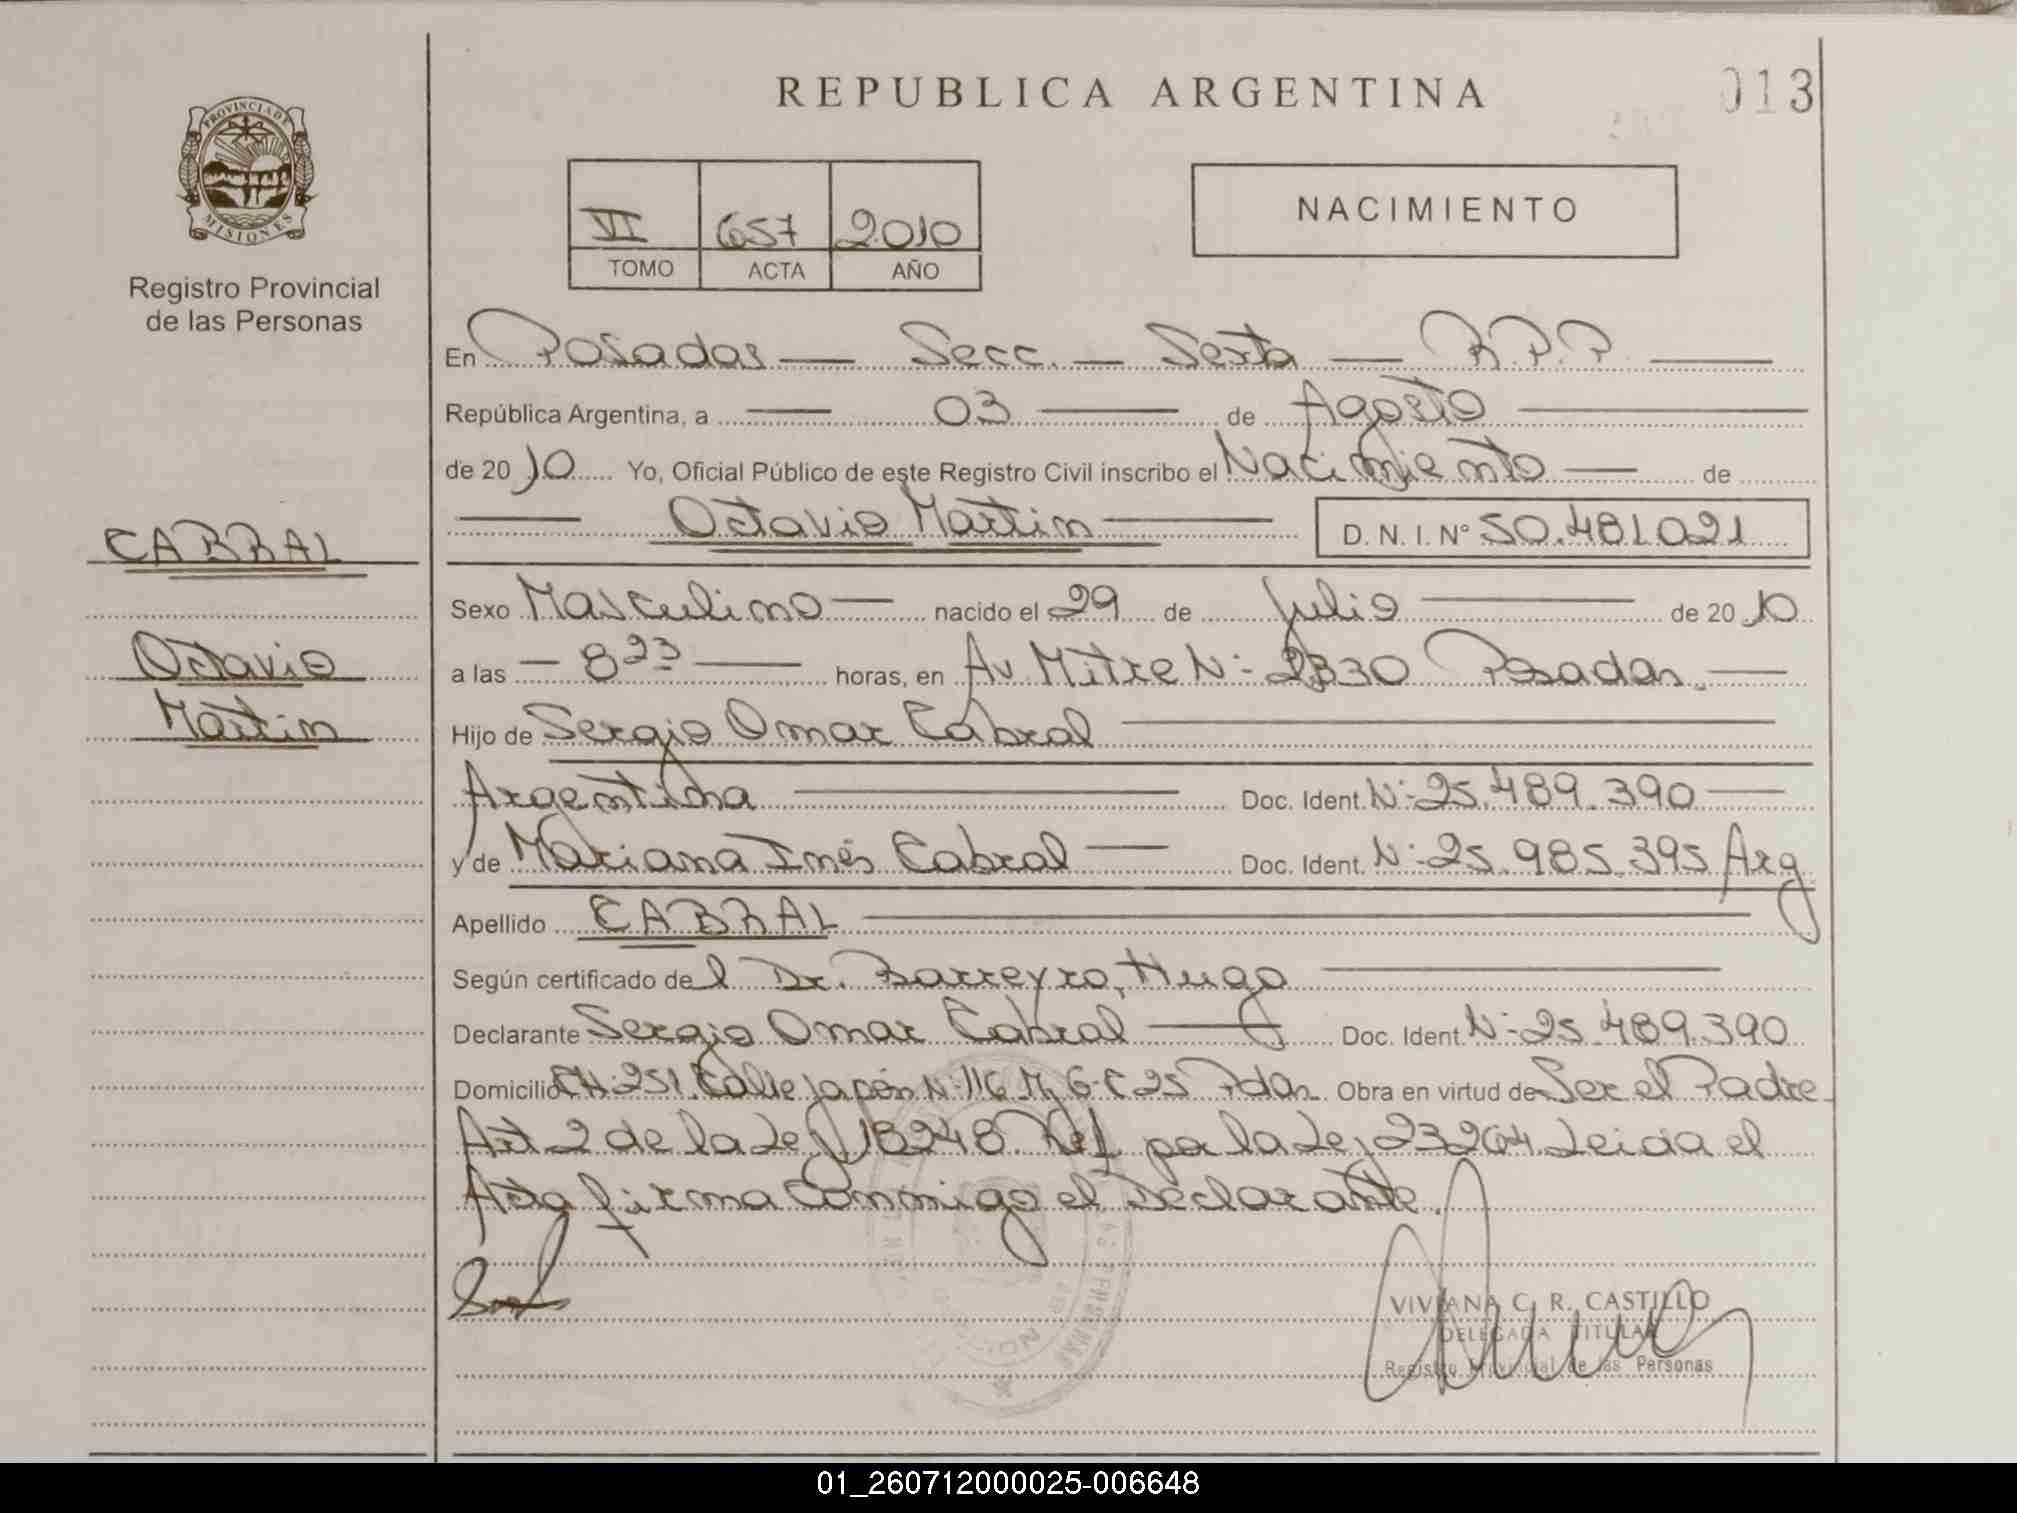 REPUBLICA ARGENTINA
013
PROVINCIA DE
MISIONES
Registro Provincial
de las Personas
VI 657 2010
TOMO ACTA AÑO
NACIMIENTO
En Posadas — Secc. — Sexta — R.P.P. —
República Argentina, a — 03 — de Agosto —
de 2010 Yo, Oficial Público de este Registro Civil inscribo el Nacimiento — de
— Octavio Martin — D. N. I. Nº 50.481.021
CABRAL
Octavio
Martin
Sexo Masculino — nacido el 29 de Julio — de 2010
a las — 8 23 — horas, en Av Mitre Nº 2330 Posadas. —
Hijo de Sergio Omar Cabral —
Argentina — Doc. Ident. Nº 25.489.390 —
y de Mariana Inés Cabral — Doc. Ident. Nº 25.985.395 Arg
Apellido CABRAL —
Según certificado del Dr. Barreyro, Hugo —
Declarante Sergio Omar Cabral — Doc. Ident. Nº 25.489.390
Domicilio CH:251. Calle Japón Nº 116 M, G-C 25 Pdas. Obra en virtud de Ser el Padre
Art 2 de la Ley 18248. Ref. por la Ley 23264. Leida el
Acta firma Conmigo el Declarante.
VIVIANA C. R. CASTILLO
DELEGADA TITULAR
Registro Provincial de las Personas
01_260712000025-006648